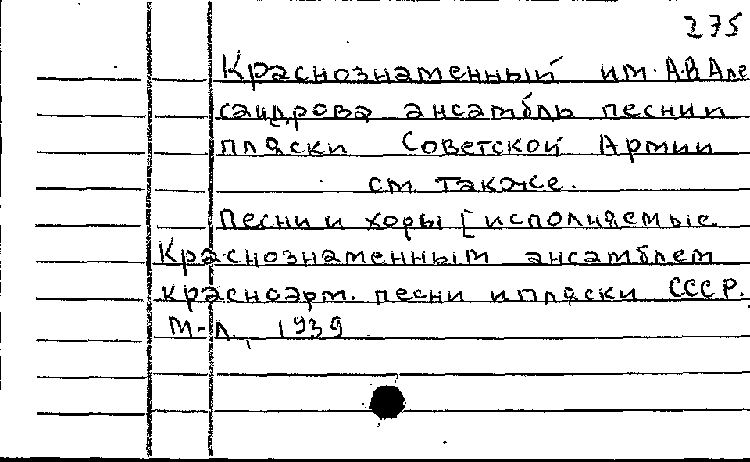 275
Краснознаменный им. А.В. Але
сандрова ансамбль песни и
пляски Советской Армии
см. также.
Песни и хоры [исполняемые
Краснознаменным ансамблем
красноарм. песни и пляски СССР.
М-Л, 1939